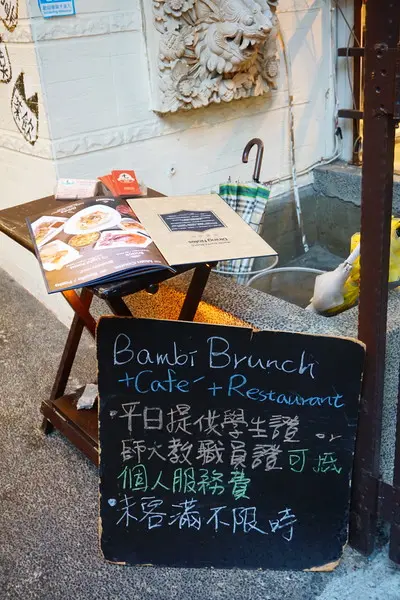 Bambi Brunch
+Café+Restaurant
·平日提供學生證 or
師大教職員證可抵
個人服務費
·未客滿不限時